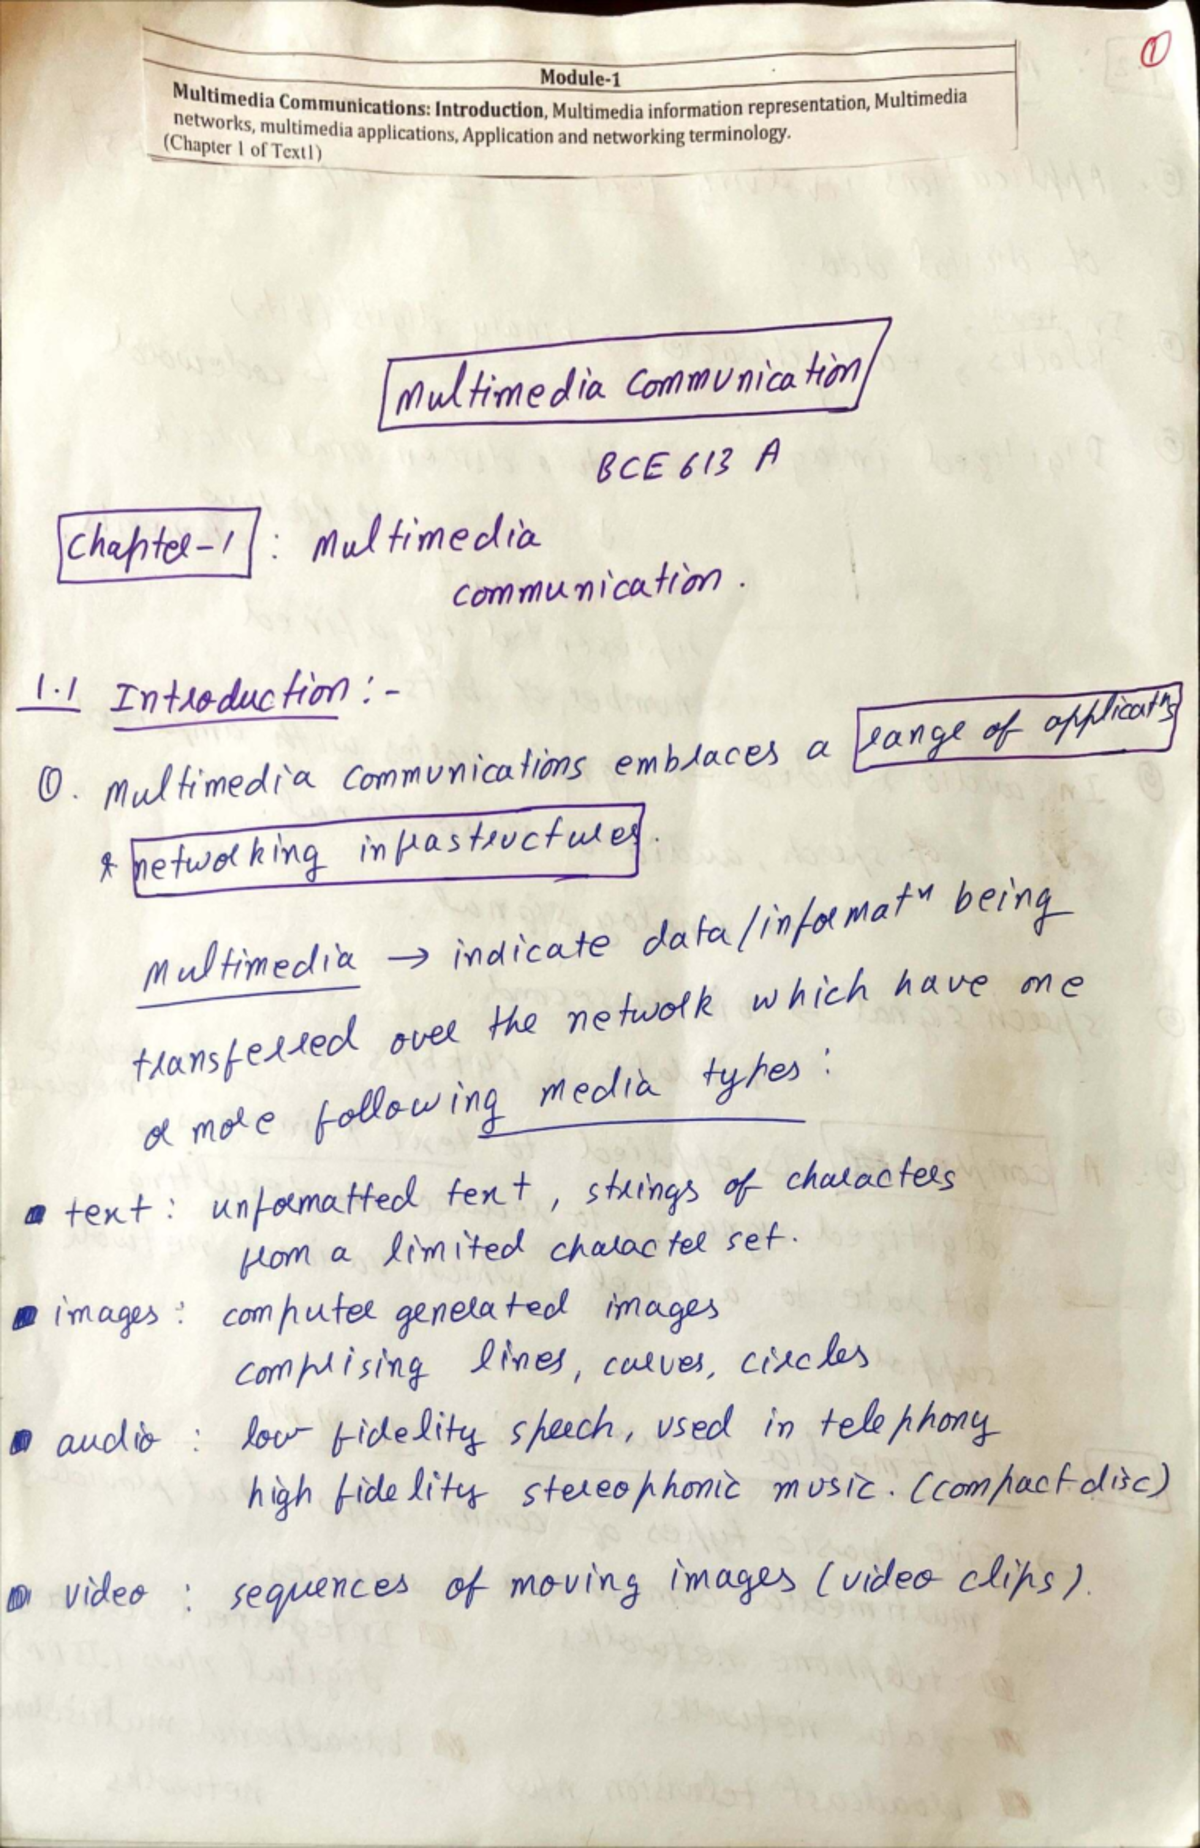 ①
Module-1
Multimedia Communications: Introduction, Multimedia information representation, Multimedia
networks, multimedia applications, Application and networking terminology.
(Chapter 1 of Text1)
Multimedia Communication
BCE 613 A
Chapter-1 : Multimedia
communication.
1.1 Introduction :-
⊙. Multimedia Communications embraces a range of applicatns
& networking infrastructures.
Multimedia → indicate data/informatn being
transferred over the network which have one
or more following media types :
■ text : unformatted text, strings of characters
from a limited character set.
■ images : computer generated images
comprising lines, curves, circles
■ audio : low fidelity speech, used in telephony
high fidelity stereophonic music. (compact disc)
■ video : sequences of moving images (video clips).